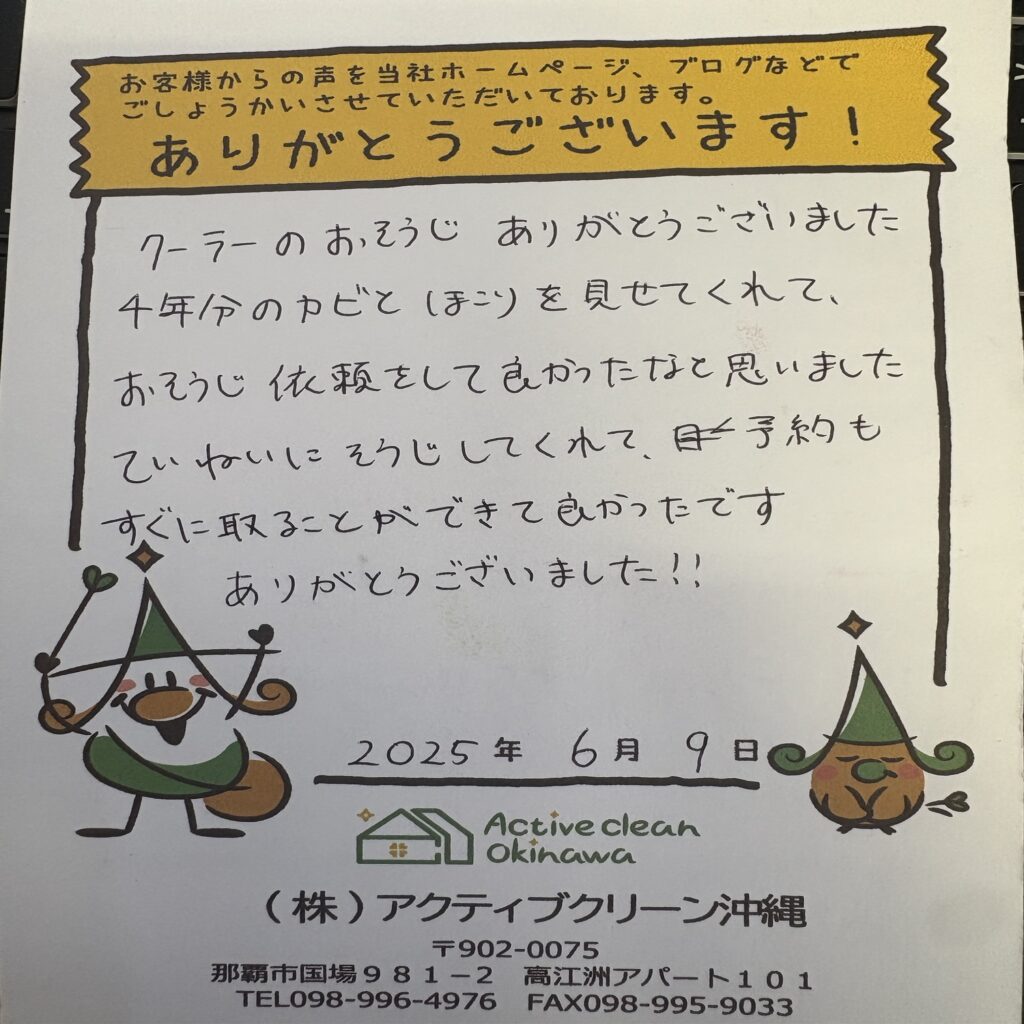 お客様からの声を当社ホームページ、ブログなどで
ごしょうかいさせていただいております。
ありがとうございます！
クーラーのおそうじ ありがとうございました
4年分のカビと ほこりを見せてくれて、
おそうじ 依頼をして良かったなと思いました
ていねいに そうじしてくれて、予約も
すぐに取ることができて良かったです
ありがとうございました!!
2025年 6月 9日
Active clean
Okinawa
（株）アクティブクリーン沖縄
〒902-0075
那覇市国場９８１－２　高江洲アパート１０１
TEL098-996-4976　FAX098-995-9033